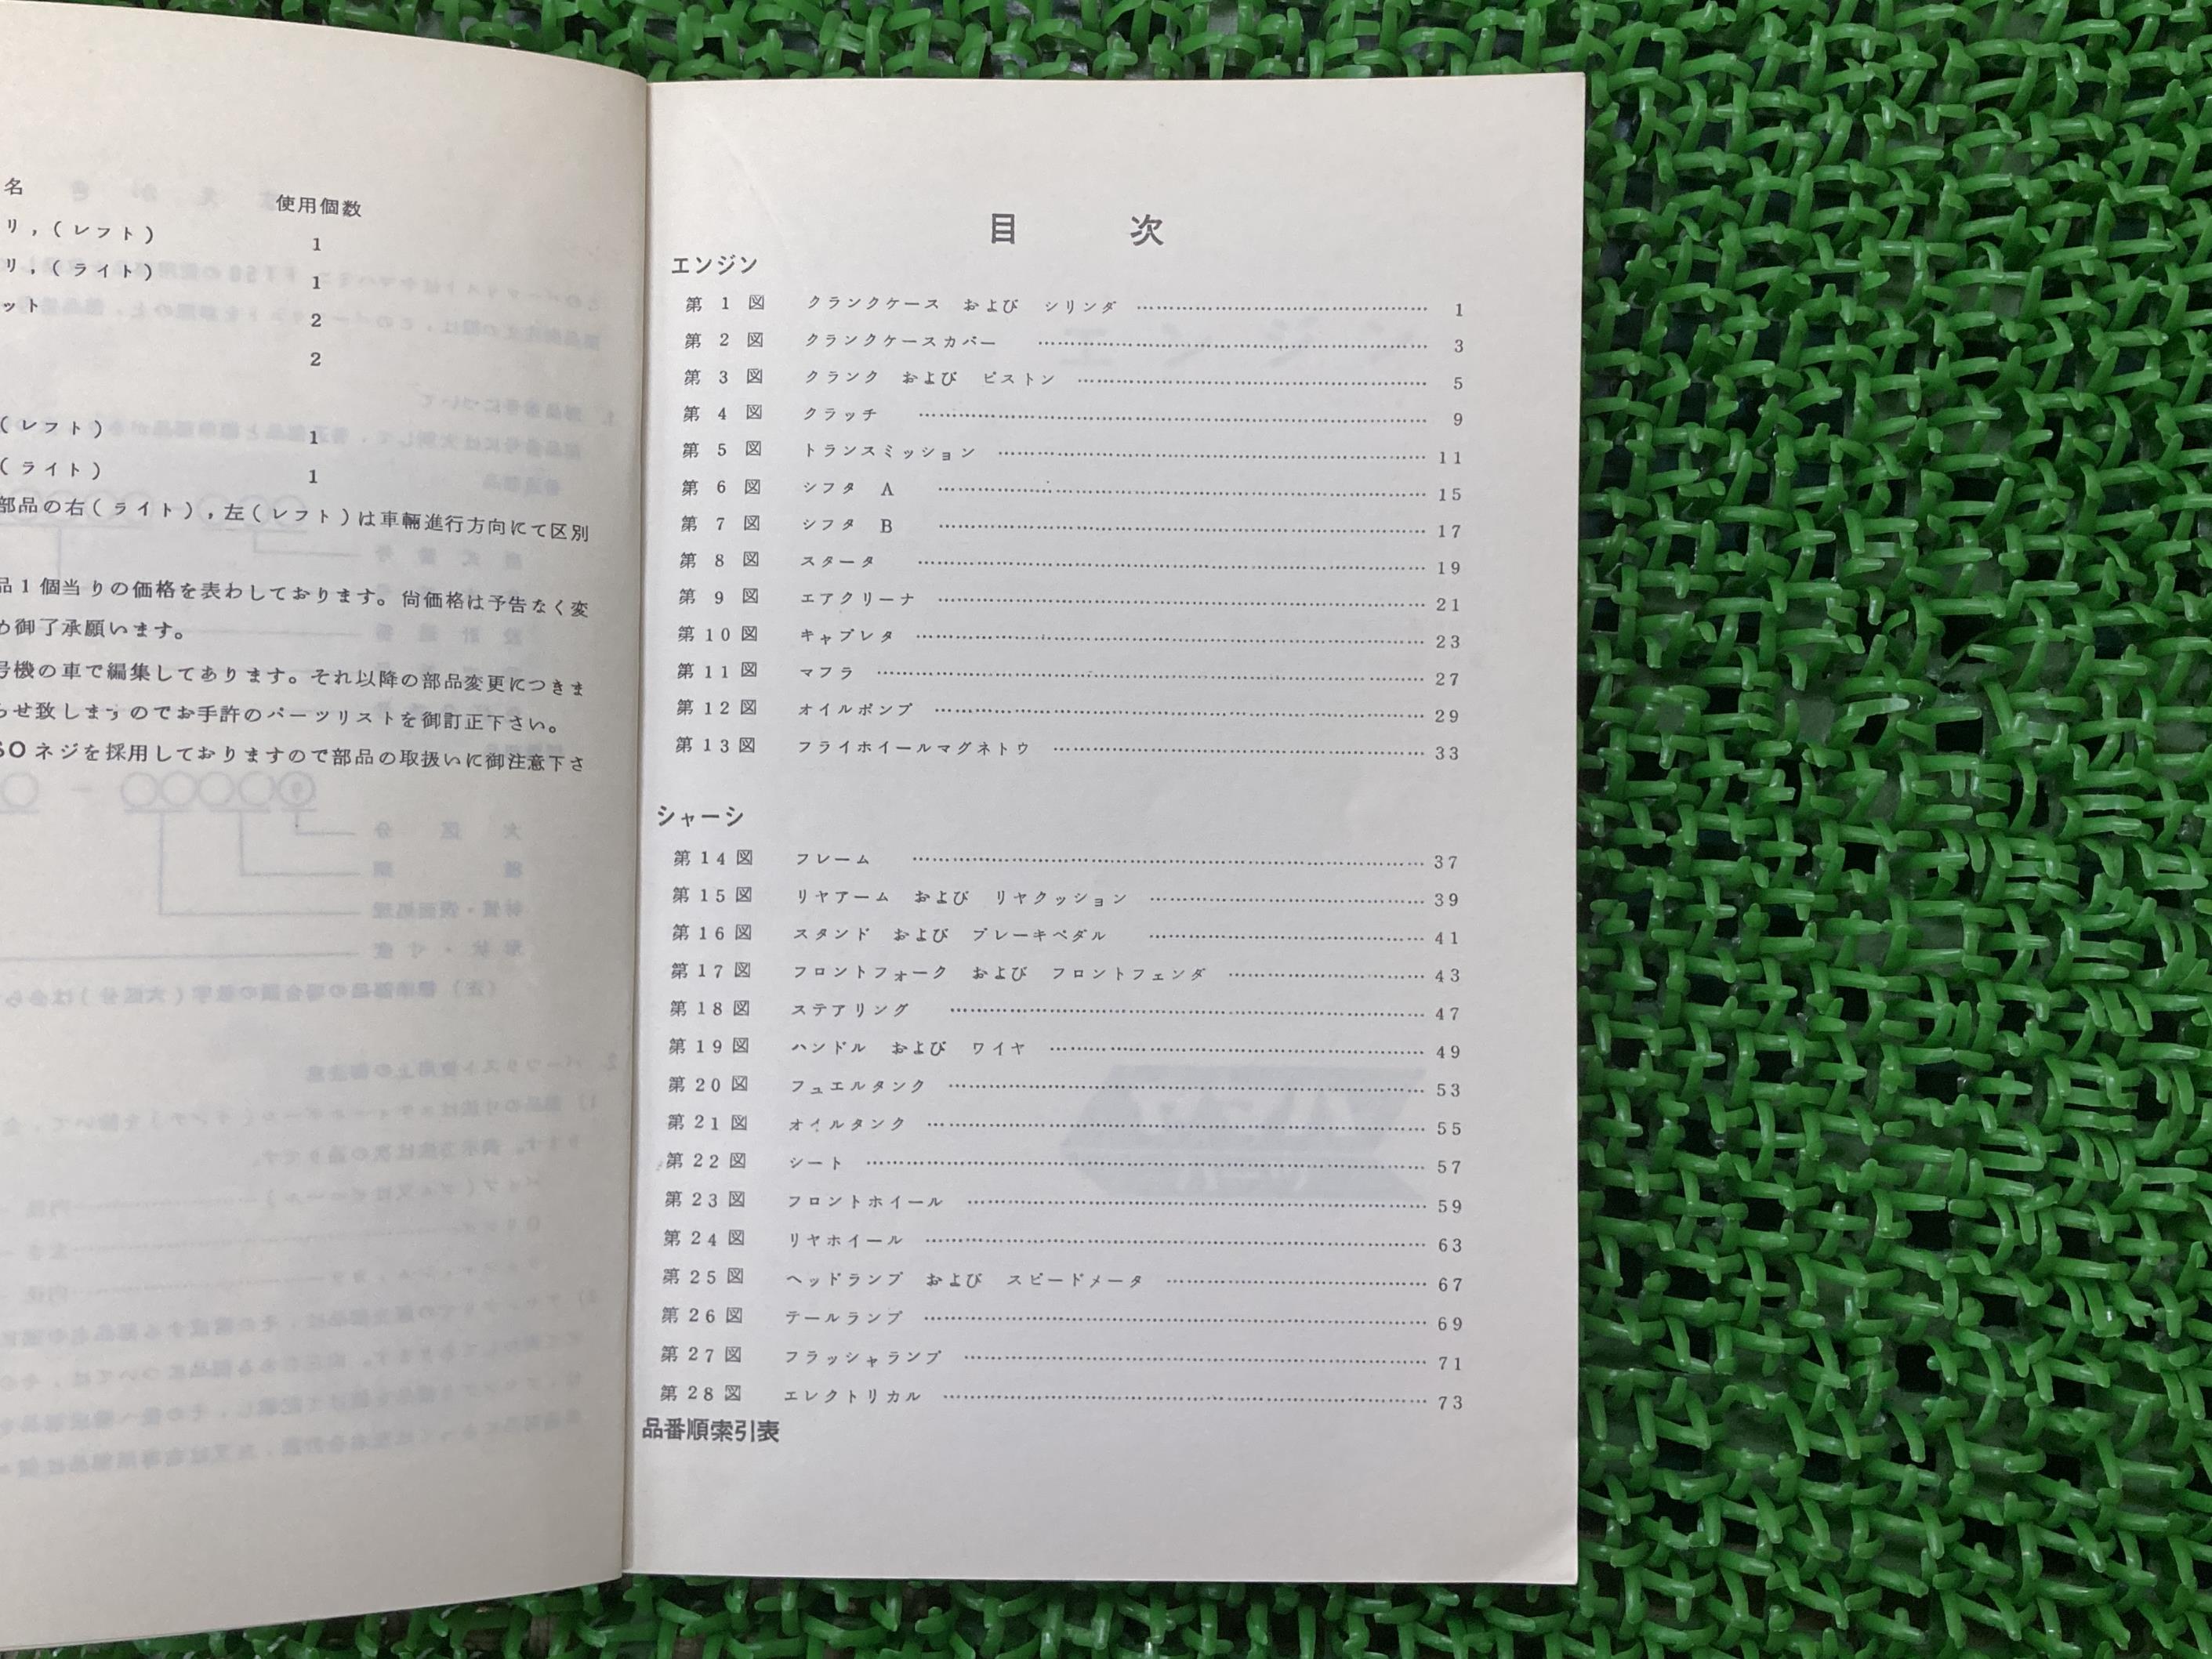 名 使用個数
リ,(レフト) 1
リ,(ライト) 1
ット 2
2
(レフト) 1
(ライト) 1
部品の右(ライト),左(レフト)は車輛進行方向にて区別
品1個当りの価格を表わしております。尚価格は予告なく変
め御了承願います。
号機の車で編集してあります。それ以降の部品変更につきま
らせ致しますのでお手許のパーツリストを御訂正下さい。
SOネジを採用しておりますので部品の取扱いに御注意下さ
目 次
エンジン
第 1 図 クランクケース および シリンダ 1
第 2 図 クランクケースカバー 3
第 3 図 クランク および ピストン 5
第 4 図 クラッチ 9
第 5 図 トランスミッション 11
第 6 図 シフタ A 15
第 7 図 シフタ B 17
第 8 図 スタータ 19
第 9 図 エアクリーナ 21
第10図 キャブレタ 23
第11図 マフラ 27
第12図 オイルポンプ 29
第13図 フライホイールマグネトウ 33
シャーシ
第14図 フレーム 37
第15図 リヤアーム および リヤクッション 39
第16図 スタンド および ブレーキペダル 41
第17図 フロントフォーク および フロントフェンダ 43
第18図 ステアリング 47
第19図 ハンドル および ワイヤ 49
第20図 フュエルタンク 53
第21図 オイルタンク 55
第22図 シート 57
第23図 フロントホイール 59
第24図 リヤホイール 63
第25図 ヘッドランプ および スピードメータ 67
第26図 テールランプ 69
第27図 フラッシャランプ 71
第28図 エレクトリカル 73
品番順索引表